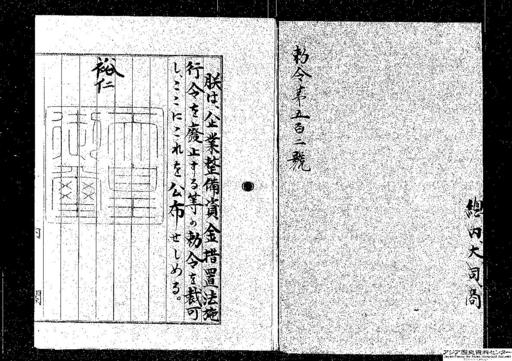 勅令第五百二號
總内大司商
朕は、企業整備資金措置法施
行令を廢止する等の勅令を裁可
し、ここにこれを公布せしめる。
裕仁
天皇
御璽
内
閣
アジア歴史資料センター